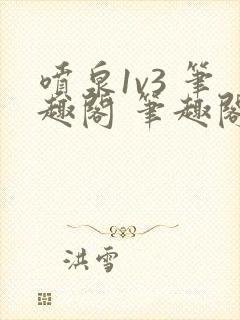 喷泉1v3 笔
趣阁 笔趣阁
洪雪